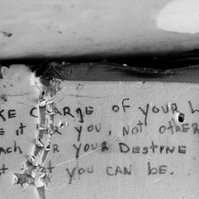 KE CHARGE OF YOUR L
E IT FOR YOU, NOT OTHER
ACH FOR YOUR DESTINE
T YOU CAN BE.